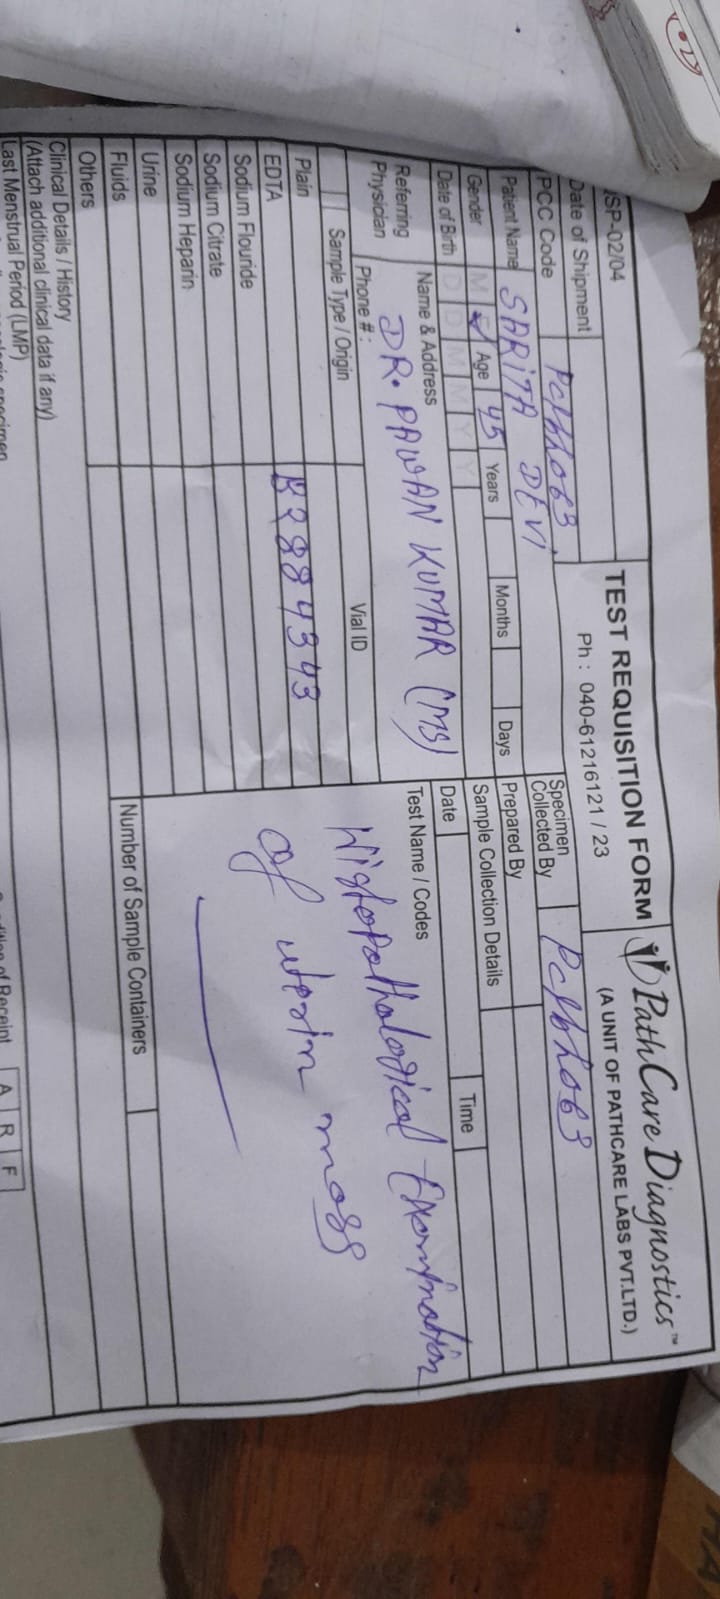 ISP-02/04
TEST REQUISITION FORM
PathCare Diagnostics™
(A UNIT OF PATHCARE LABS PVT.LTD.)
Date of Shipment
Ph : 040-61216121 / 23
PCC Code
Specimen Collected By
Patient Name SARITA DEVI
Prepared By
Gender M F ✓ Age 45 Years Months Days
Sample Collection Details
Date of Birth D D M M Y Y
Date Time
Referring Physician
Name & Address
DR. PAWAN KUMAR (MS)
Phone # :
Test Name / Codes
Histopathological Examination
of uterin mass
Sample Type / Origin Vial ID
Plain
EDTA
Sodium Flouride
Sodium Citrate
Sodium Heparin
Urine
Fluids
Number of Sample Containers
Others
Clinical Details / History
(Attach additional clinical data if any)
Last Menstrual Period (LMP)
A R F